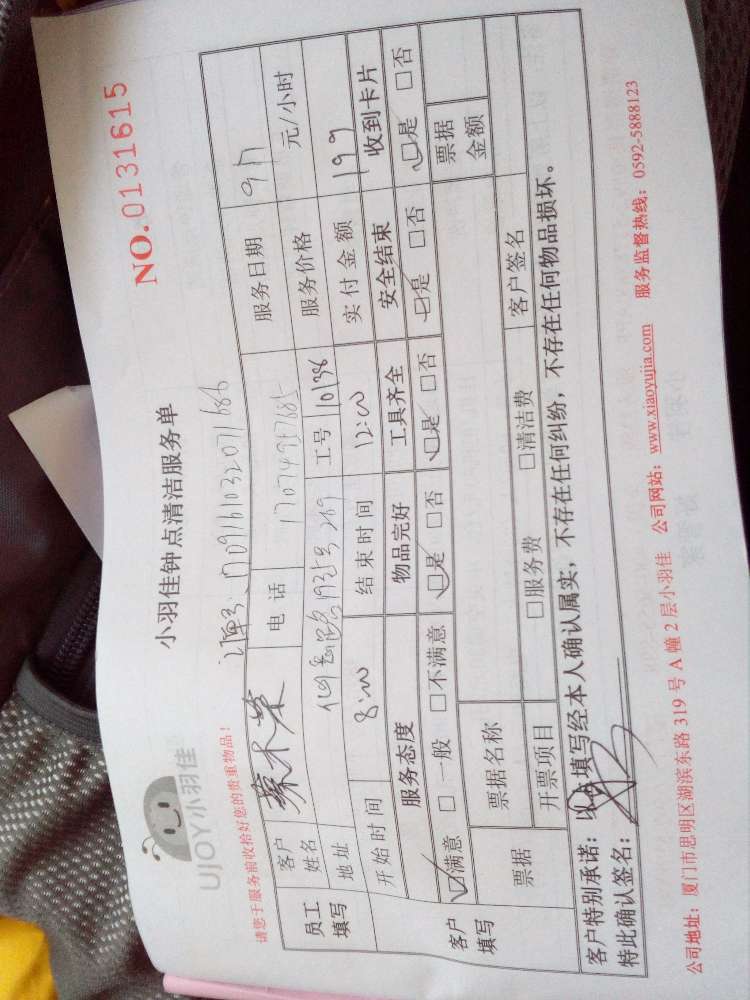 UJOY小羽佳
小羽佳钟点清洁服务单
NO.0131615
请您于服务前收拾好您的贵重物品！
员工填写 客户姓名 电话 服务日期
地址 工号 101386 服务价格 元/小时
开始时间 8:00 结束时间 12:00 实付金额 199
客户填写 服务态度 物品完好 工具齐全 安全结束 收到卡片
☑满意 □一般 □不满意 ☑是 □否 ☑是 □否 ☑是 □否 ☑是 □否
票据 票据名称 票据金额
开票项目 □服务费 □清洁费 客户签名
客户特别承诺：以上填写经本人确认属实，不存在任何纠纷，不存在任何物品损坏。
特此确认签名：
公司地址：厦门市思明区湖滨东路 319 号 A 幢 2 层小羽佳 公司网站：www.xiaoyujia.com 服务监督热线：0592-5888123